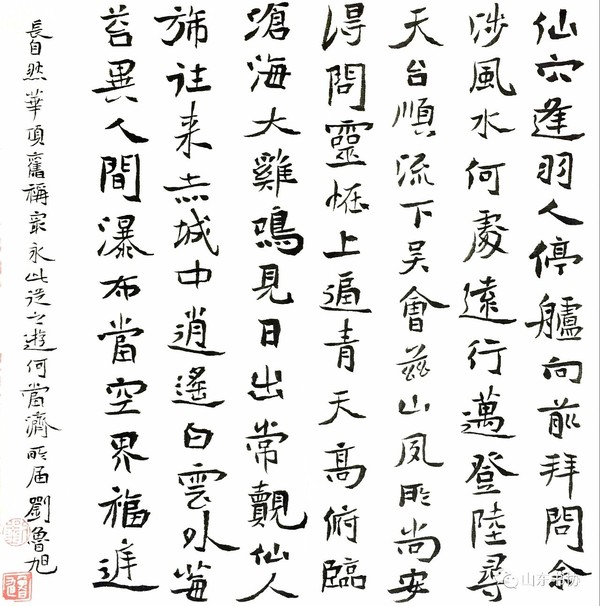 仙穴逢羽人停艫向前拜問余
涉風水何處遠行邁登陸尋
天台順流下吳會茲山夙所尚安
得問靈怪上逼青天高俯臨
滄海大雞鳴見日出常覿仙人
旆往来赤城中逍遙白雲外莓
苔異人間瀑布當空界福庭
長自然華頂舊稱最永此從之遊何當濟所届劉魯旭
山东书协